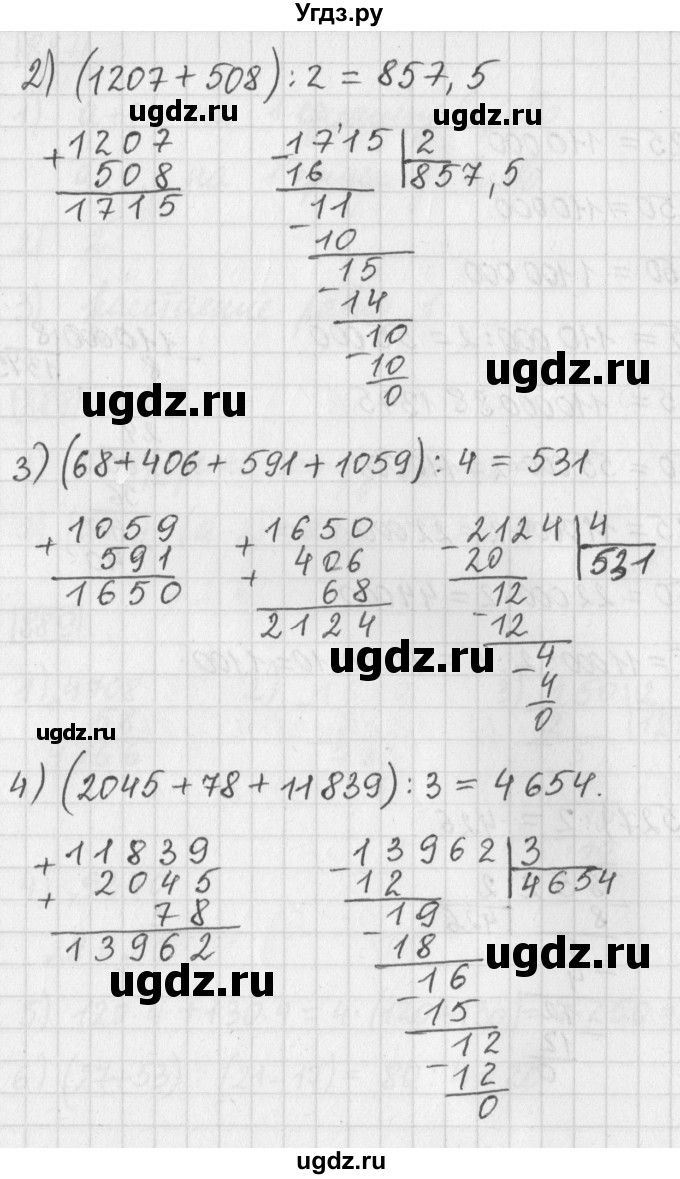 Угдз.ру
2) (1207 + 508) : 2 = 857,5
ugdz.ru ugdz.ru
+ 1207
508
1715
- 1715 | 2
16 | 857,5
11
- 10
15
- 14
10
- 10
0
ugdz.ru
ugdz.ru
3) (68 + 406 + 591 + 1059) : 4 = 531
+ 1059
591
1650
+ 1650
+ 406
68
2124
- 2124 | 4
20 | 531
12
- 12
4
- 4
0
ugdz.ru
ugdz.ru
4) (2045 + 78 + 11839) : 3 = 4654.
+ 11839
+ 2045
78
13962
- 13962 | 3
12 | 4654
19
- 18
16
- 15
12
- 12
0
ugdz.ru
ugdz.ru
ugdz.ru